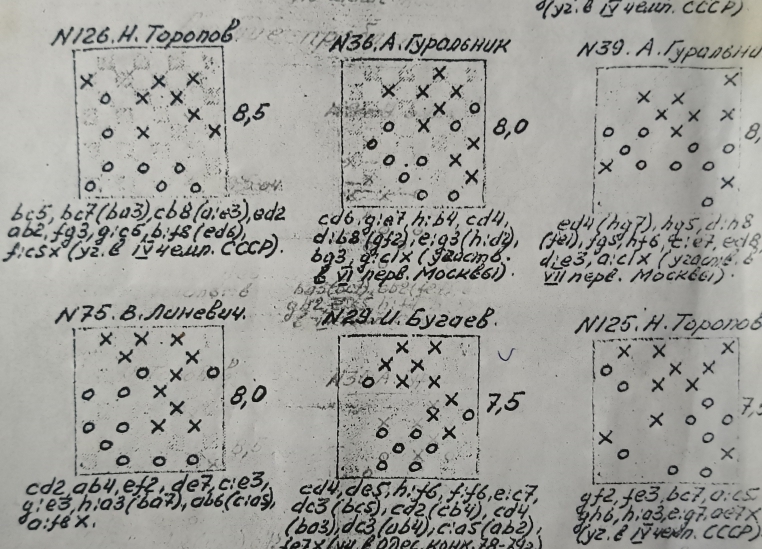 (уч. в IV чемп. СССР)
N126. Н. Торопов
8,5
bc5, bc7(ba3), cb8(a:e3), ed2
ab2, fg3, g:c6, b:f8(ed6),
f:c5x (уч. в IV чемп. СССР).
N36. А. Гуральник
8,0
cd6, g:e7, h:b4, cd4,
d:b8(gf2), e:g3(h:d2),
bg3, g:c1x (участв.
в VI перв. Москвы).
N39. А. Гуральни
8,
ed4(hg7), hg5, d:h8
(fe1), fg5, hf6, e:e7, ed8,
d:e3, a:c1x (участв. в
VII перв. Москвы).
N75. В. Линевич.
8,0
cd2, ab4, ef2, de7, c:e3,
g:e3, h:a3(ba7), ab6(c:a5),
a:f8x.
N29. И. Бугаев.
7,5
cd4, de5, h:f6, f:f6, e:c7,
dc3(bc5), cd2(cb4), cd4,
(ba3), dc3(ab4), c:a5(ab2),
N125. Н. Торопов
7,5
gf2, fe3, bc7, a:c5
gh6, h:a3, e:g7, ae7x
(уч. в IV чемп. СССР)